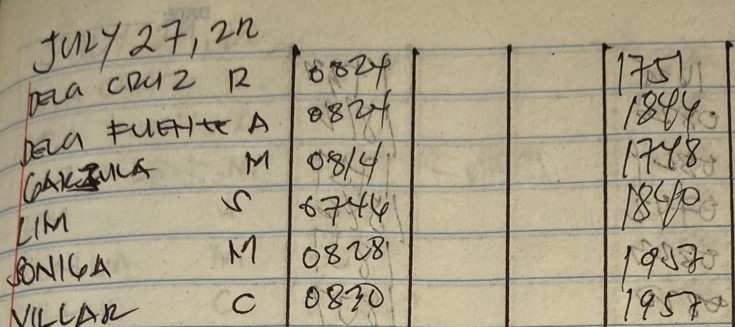 JULY 27, 22
DELA CRUZ R 0824 1751
DELA FUENTE A 0824 1844
M 0814 1748
LIM S 0744 1840
SONIGA M 0828 1957
VILLAR C 0830 1957